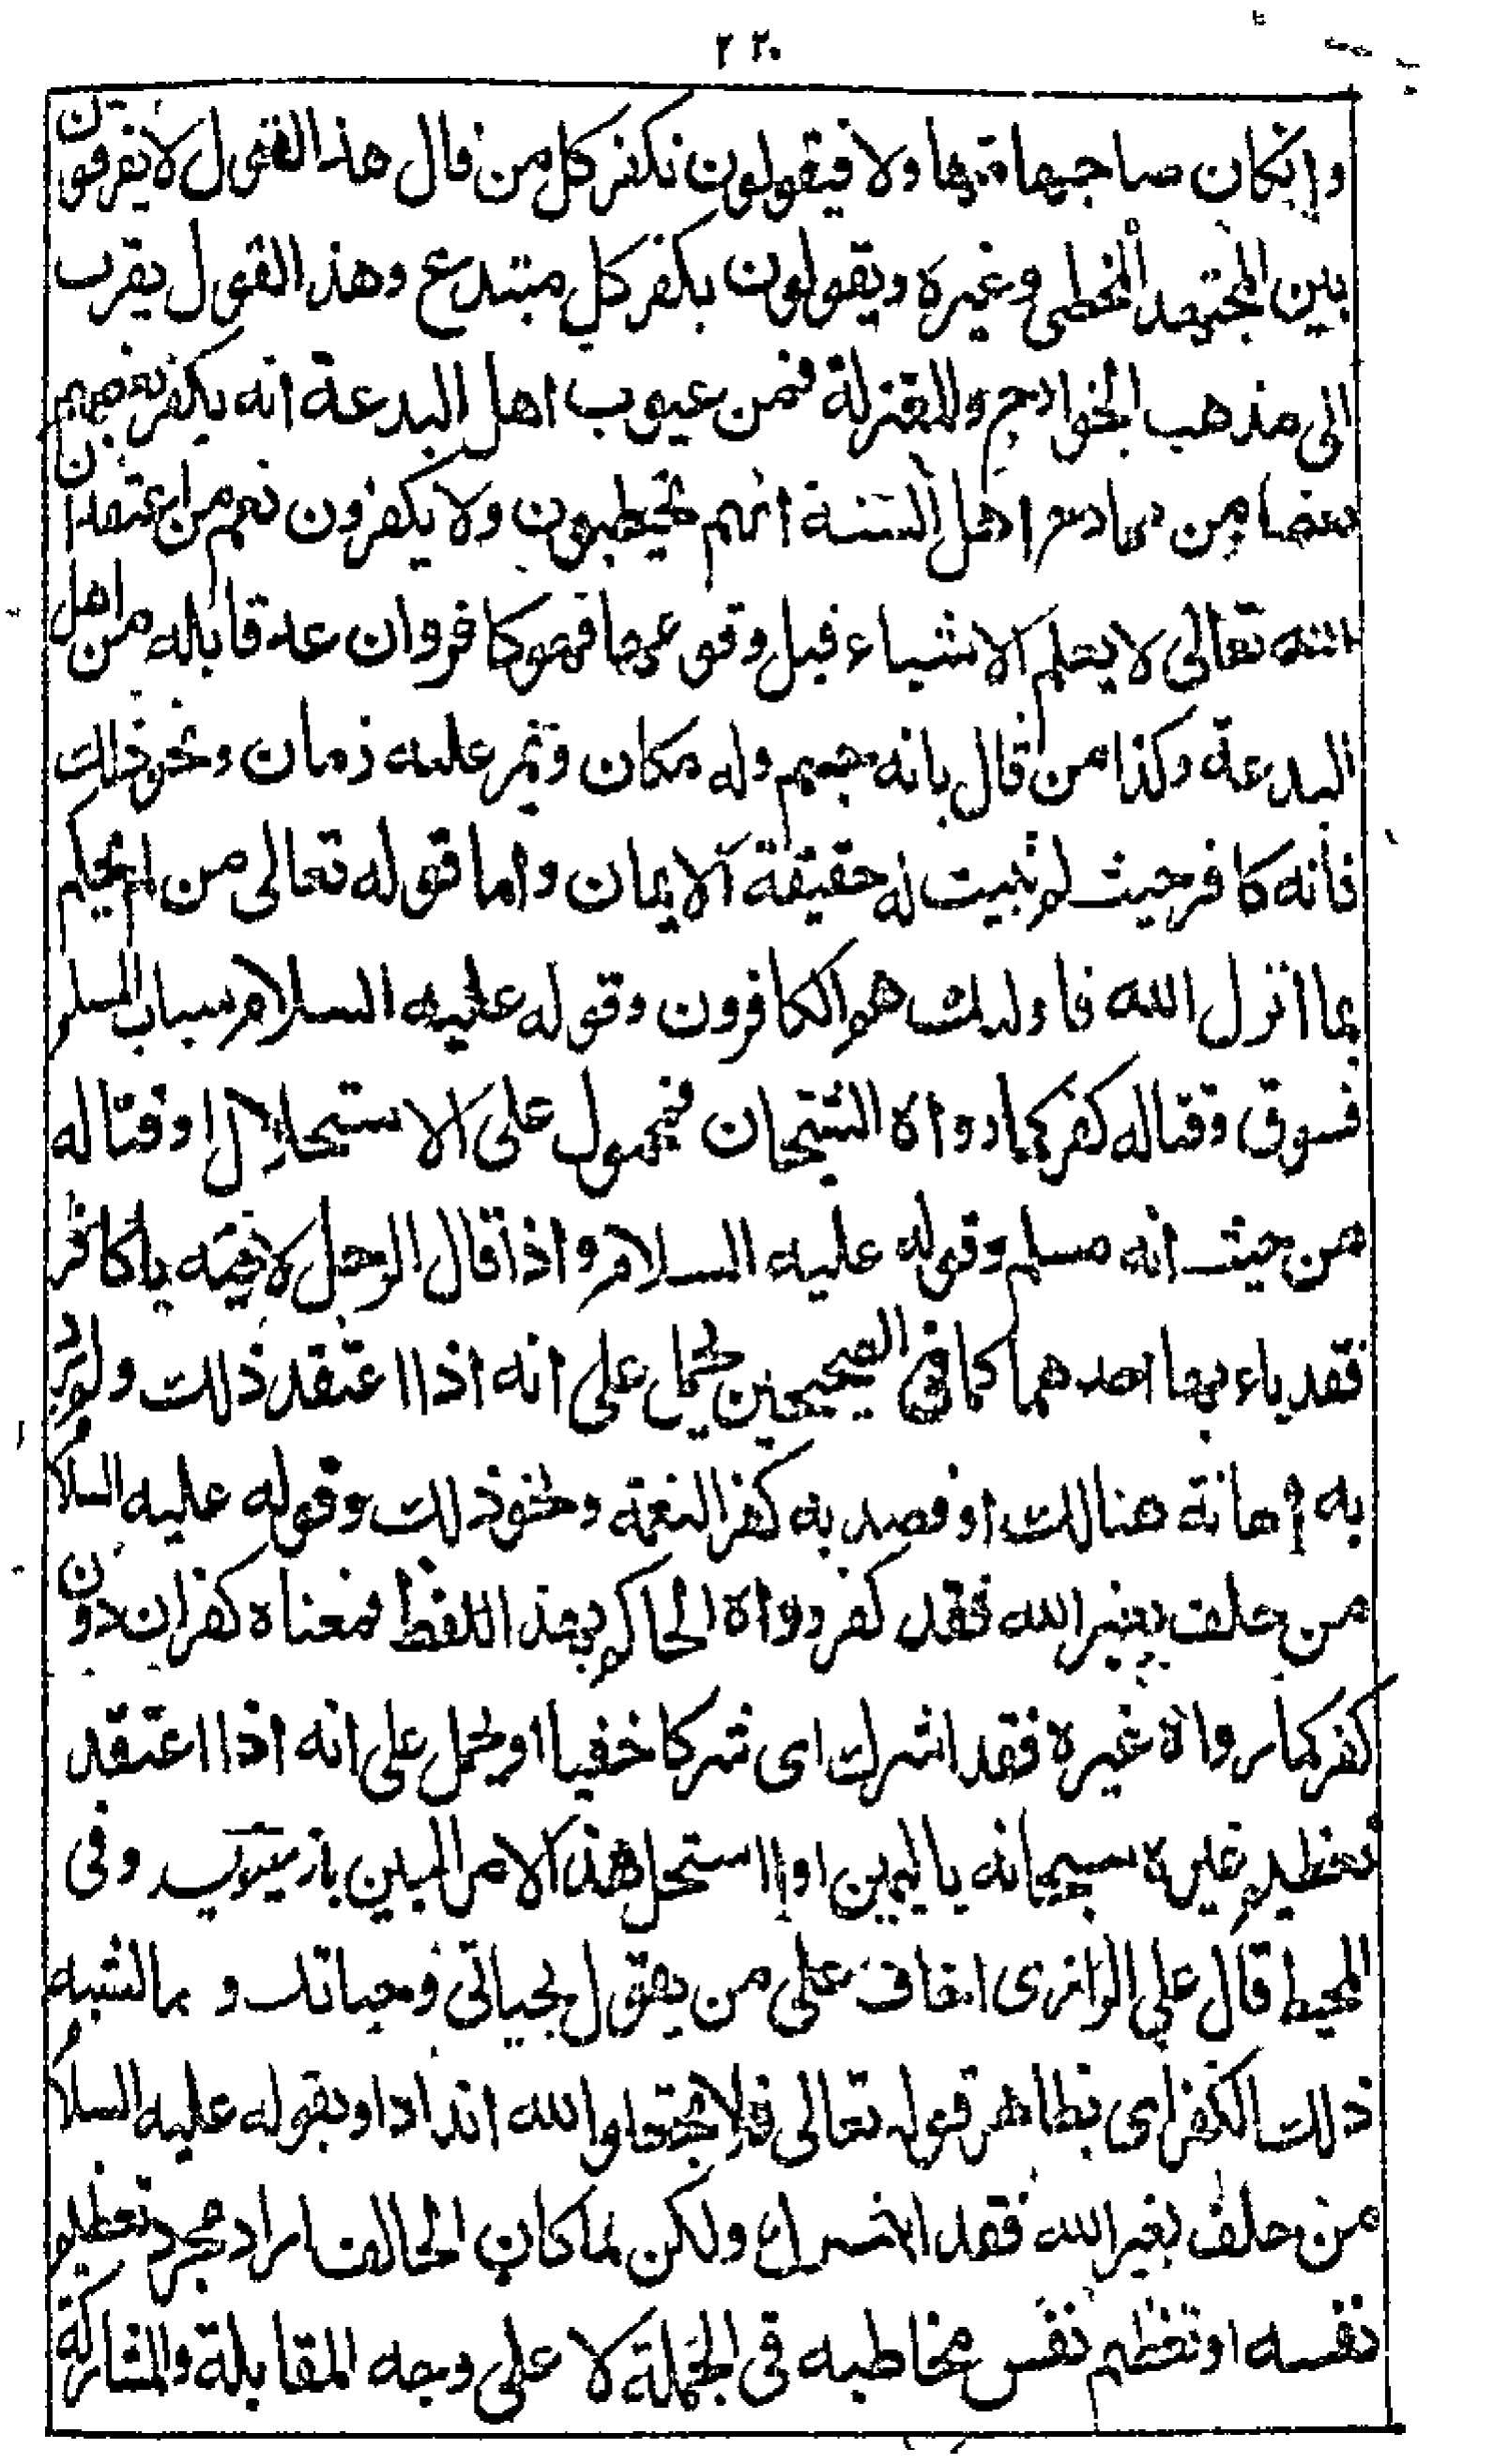 ٢٢٠
وإنكان صاحبها متها ولا فيقولون نكفر كل من قال هذا القول لا يفرقون
بين المجتهد المخطى وغيره ويقولون بكفر كل مبتدع وهذا القول يقرب
الى مذهب الخوادج والمعتزلة فمن عيوب اهل البدعة انه يكفر بعضهم
بعضا من اهل السنة انهم يخطبون ولا يكفرون نعم من اعتقد ان
الله تعالى لا يعلم الاشياء قبل وقوعها فهو كافر وان عد قايله من اهل
البدعة وكذا من قال بانه جسم وله مكان ويمر عليه زمان ونحو ذلك
فانه كافر حيث لم تثبت له حقيقة الايمان واما قوله تعالى من لم يحكم
بما انزل الله فاولئك هم الكافرون وقوله عليه السلام سباب المسلم
فسوق وقتاله كفر كما رواه الشيخان فمحمول على الاستحلال او قتاله
من حيث انه مسلم وقوله عليه السلام واذا قال الرجل لاخيه ياكافر
فقد باء بها احدهما كما في الصحيحين يحمل على انه اذا اعتقد ذلك ولم يرد
به اهانة هنالك او قصد به كفر النعمة ونحو ذلك وقوله عليه السلا
من حلف بغير الله فقد كفر رواه الحاكم بهذا اللفظ فمعناه كفران دون
كفر كما رواه غيره فقد اشرك اى شركا خفيا او يحمل على انه اذا اعتقد
تعظيم غيره سبحانه باليمين او استحل هذا الامر المبين وفى
المحيط قال على الرازى اخاف على من يقول بحياتى وحياتك و بما اشبه
ذلك الكفر اى بظاهر قوله تعالى فلا تجعلوا لله اندادا وبقوله عليه السلا
من حلف بغير الله فقد اشرك ولكن لما كان الحالف اراد مجرد تعظيم
نفسه او تعظيم نفس مخاطبه فى الجملة لا على وجه المقابلة والمشاركة